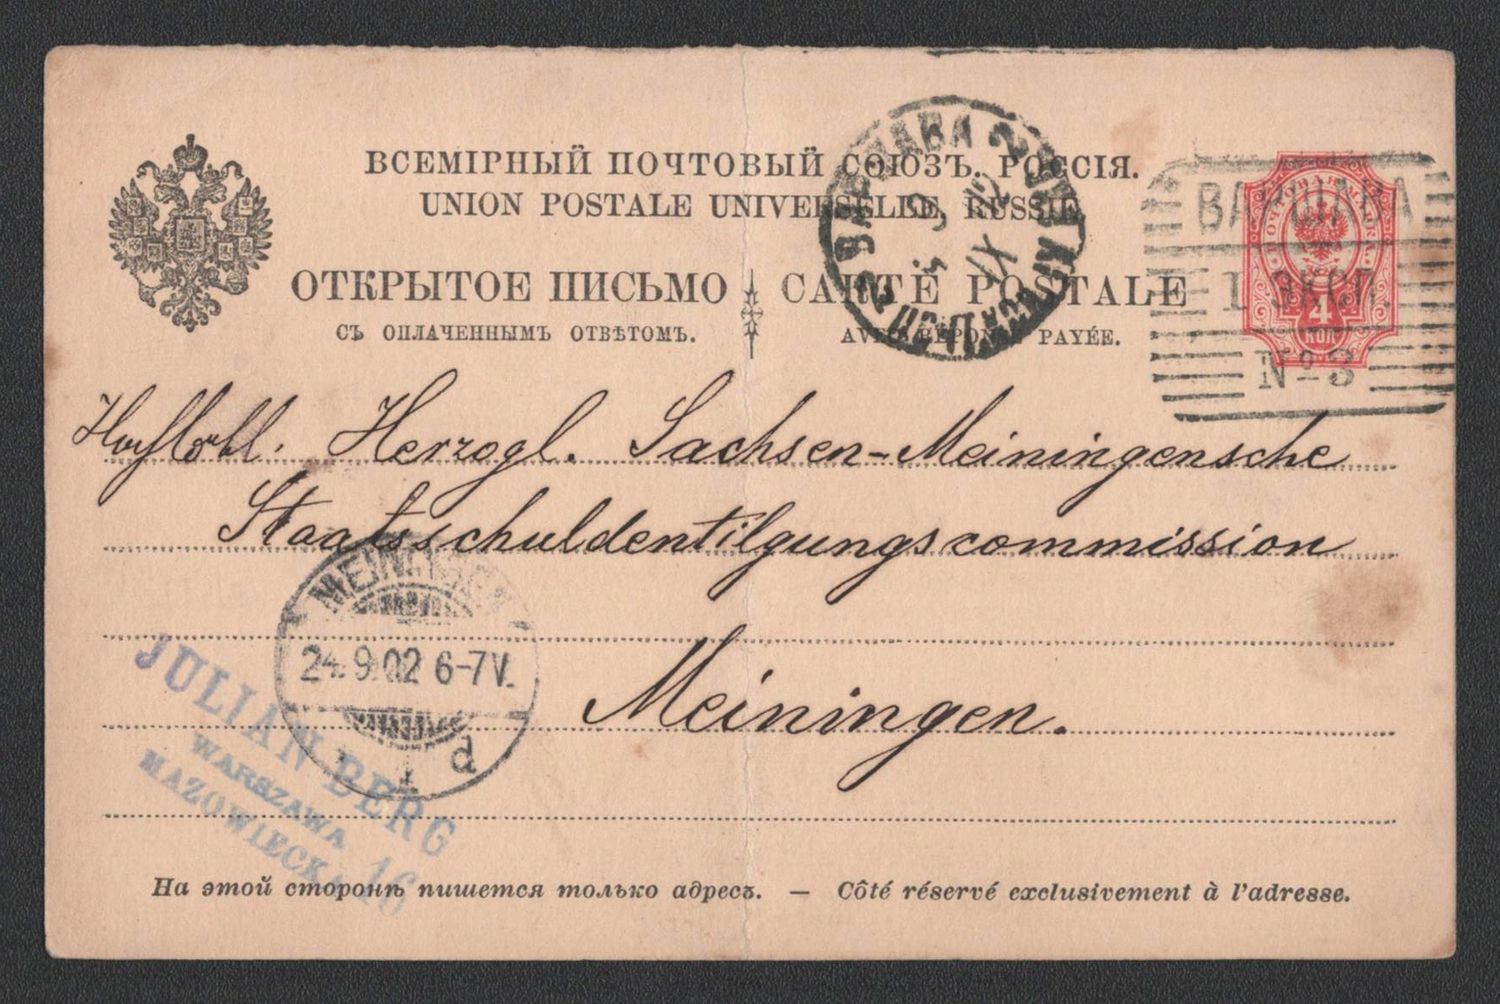 ВСЕМІРНЫЙ ПОЧТОВЫЙ СОЮЗЪ. РОССІЯ.
UNION POSTALE UNIVERSELLE, RUSSIE
ОТКРЫТОЕ ПИСЬМО CARTE POSTALE
СЪ ОПЛАЧЕННЫМЪ ОТВѢТОМЪ. AVEC RÉPONSE PAYÉE.
ВАРШАВА
ВАРШАВА
1 ЭКСП.
№ 3
4
КОП
Herzogl. Sachsen-Meiningensche
Staatsschuldentilgungscommission
Meiningen.
MEININGEN
24.9.02 6-7V.
1 d
JULIAN BERG
WARSZAWA
MAZOWIECKA 16
На этой сторонѣ пишется только адресъ. — Côté réservé exclusivement à l'adresse.